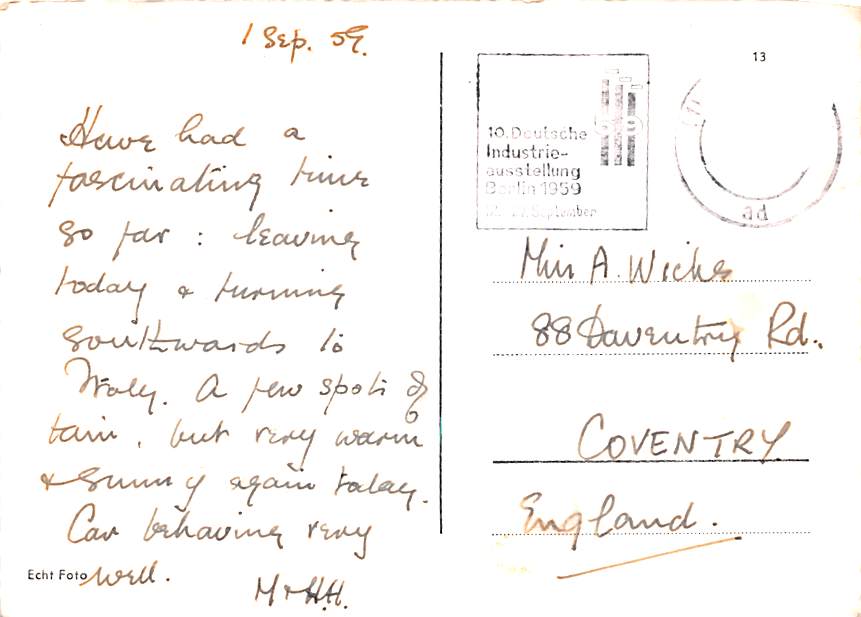 1 Sep. 59.
Have had a
fascinating time
so far : leaving
today & turning
southwards to
Italy. A few spots of
rain, but very warm
& sunny again today.
Car behaving very
well.
M & H.H.
Echt Foto
13
10. Deutsche
Industrie-
ausstellung
Berlin 1959
September
ad
Miss A. Wicks
88 Daventry Rd.,
COVENTRY
England.